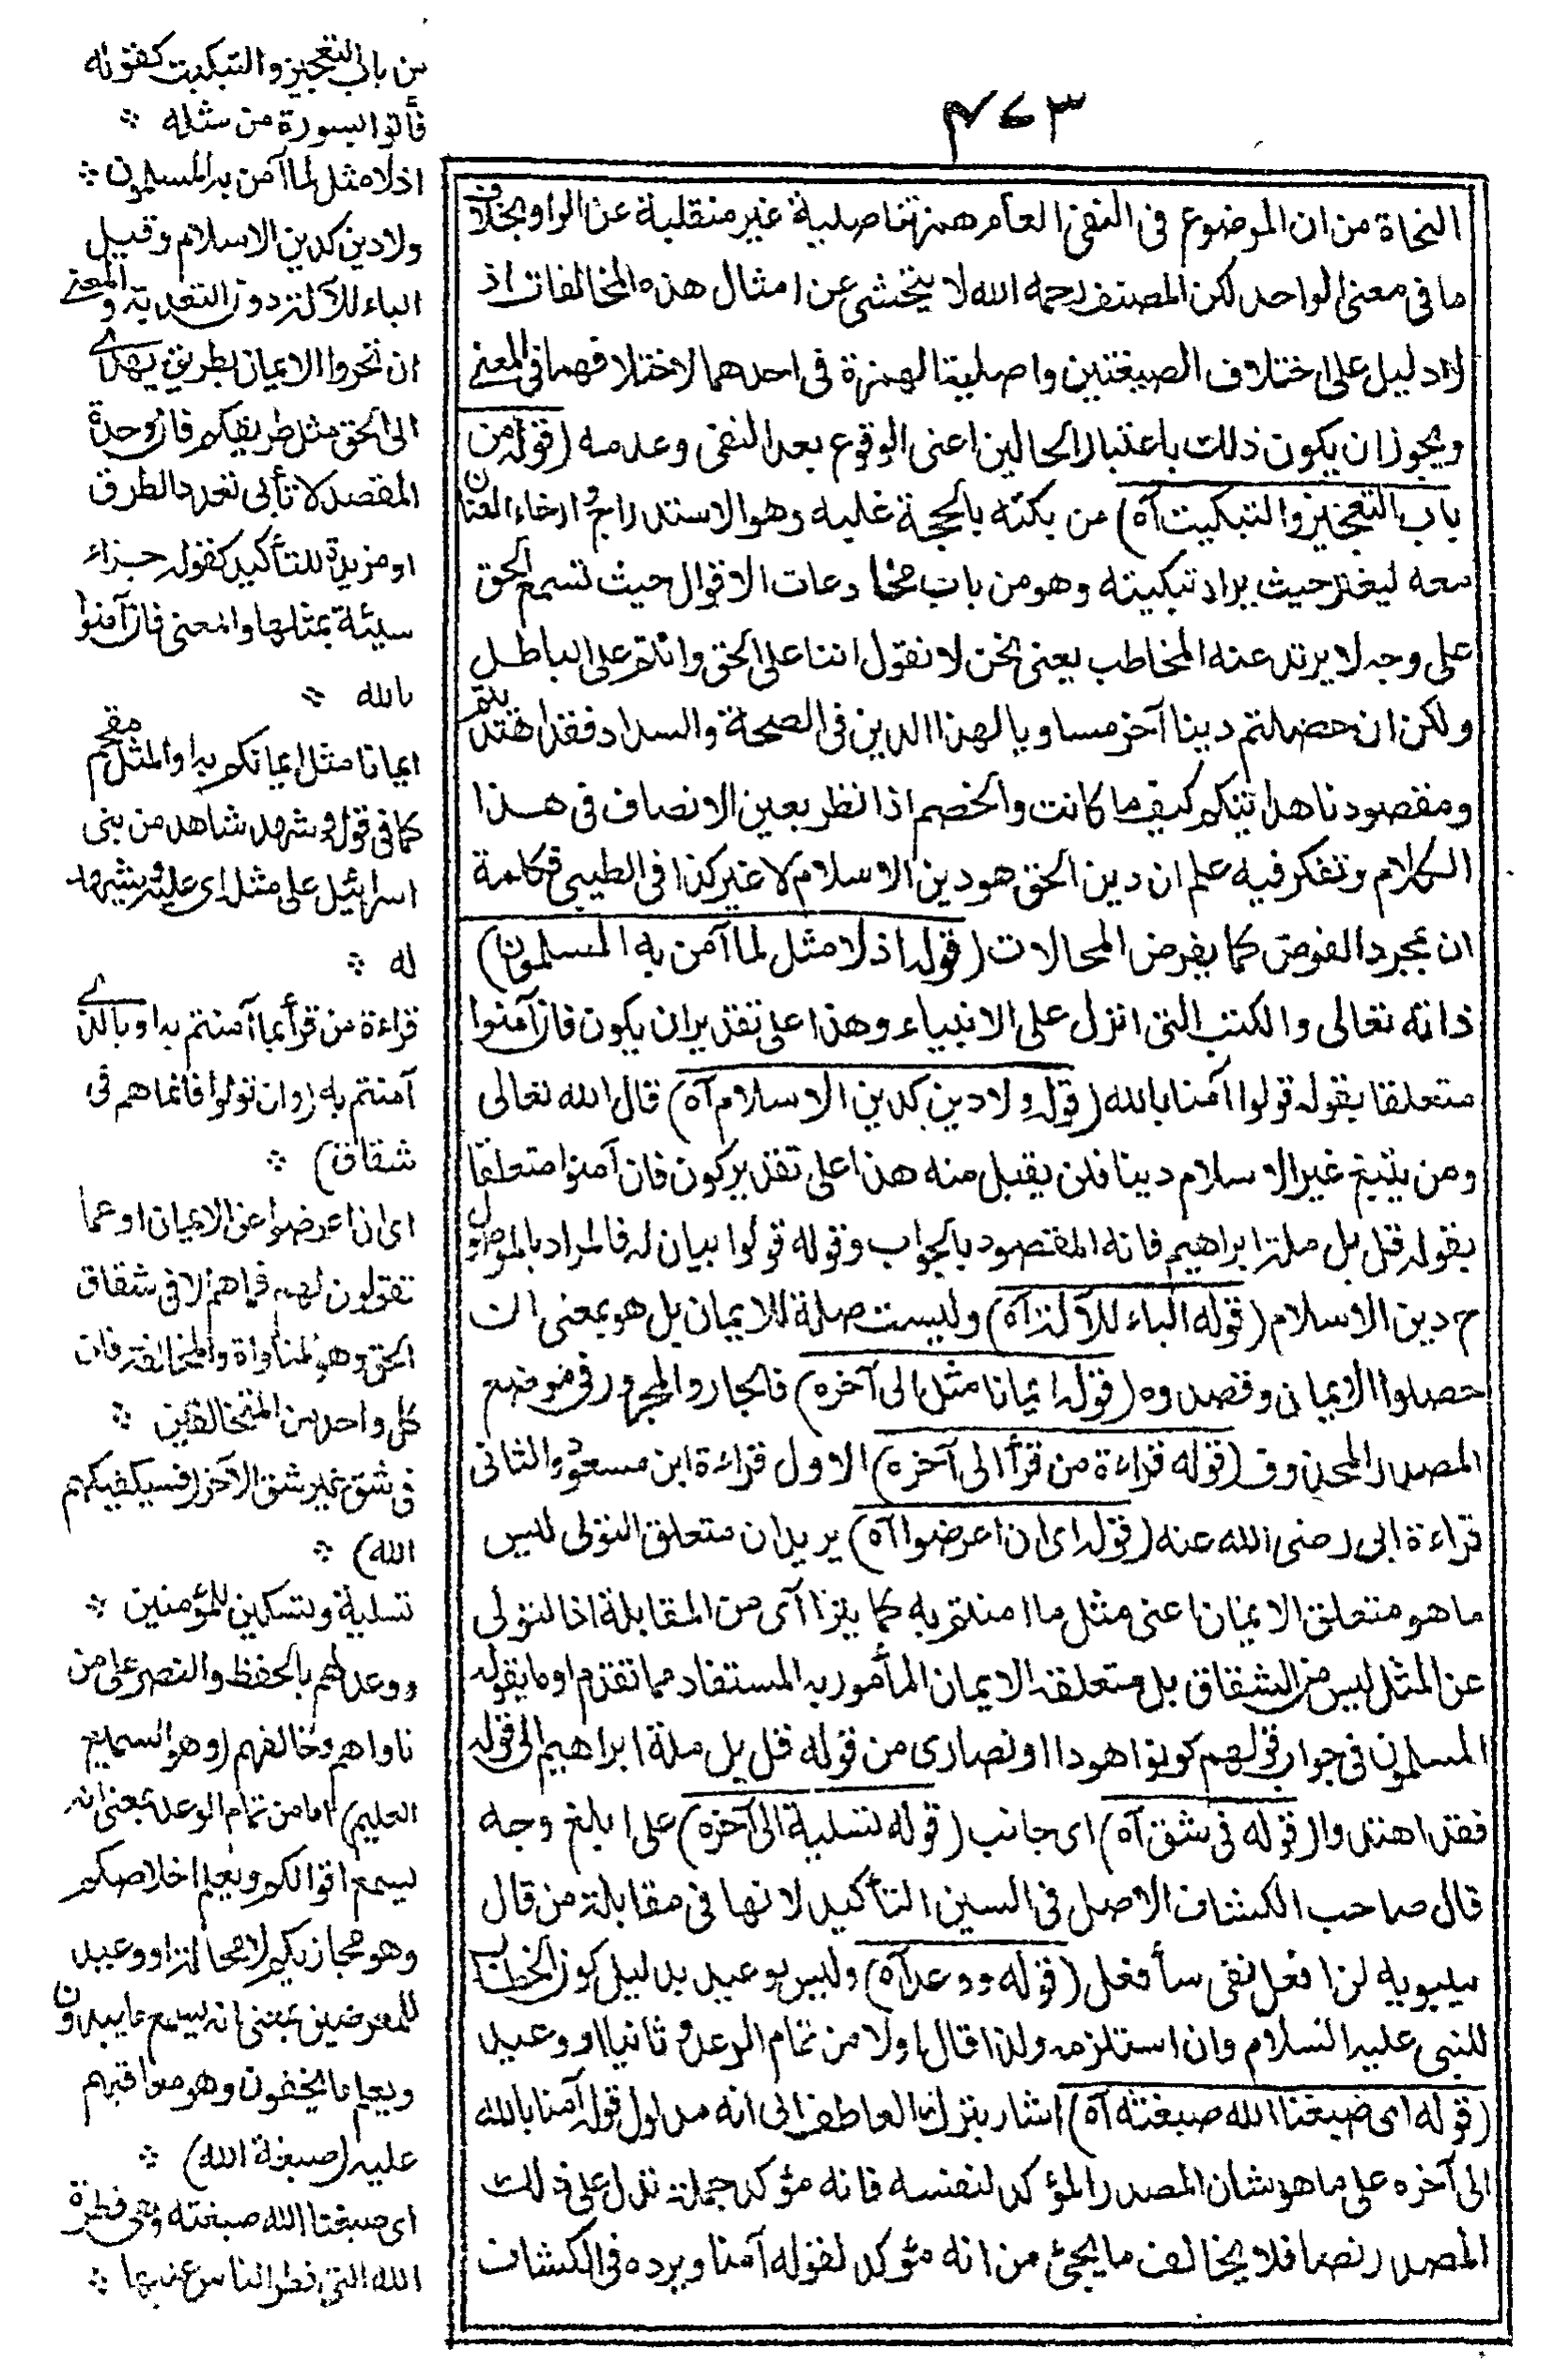 ٤٧٣
النحاة من ان الموضوع فى النفى العام همزته اصلية غير منقلبة عن الواو بخلاف
ما فى معنى الواحد لكن المصنف رحمه الله لا يتحشى عن امثال هذه المخالفات اذ
لا دليل على اختلاف الصيغتين واصلية الهمزة فى احدهما لاختلافهما فى المعنے
ويجوز ان يكون ذلك باعتبار الحالين اعنى الوقوع بعد النفى وعدمه (قوله من
باب التعجيز والتبكيت آه) من بكته بالحجة غلبه وهو الاستدراج وارخاء العنان
معه ليعثر حيث يراد تبكيته وهو من باب مخادعات الاقوال حيث تسمع الحق
على وجه لا يرتد عنه المخاطب يعنى نحن لا نقول اننا على الحق وانتم على الباطل
ولكن ان حصلتم دينا آخر مساويا لهذا الدين فى الصحة والسداد فقد اهتديتم
ومقصودنا هدايتكم كيف ما كانت والخصم اذا نظر بعين الانصاف فى هذا
الكلام وتفكر فيه علم ان دين الحق هو دين الاسلام لا غير كذا فى الطيبى فكلمة
ان بمجرد الفرض كما يفرض المحالات (قوله اذ لا مثل لما آمن به المسلمون)
ذاته تعالى والكتب التى انزل على الانبياء وهذا على تقدير ان يكون فان آمنوا
متعلقا بقوله قولوا آمنا بالله (قوله ولا دين كدين الاسلام آه) قال الله تعالى
ومن يبتغ غير الاسلام دينا فلن يقبل منه هذا على تقدير كون فان آمنوا متعلقا
بقوله قل بل ملة ابراهيم فانه المقصود بالجواب وقوله قولوا بيان له فالمراد بالموصول
ح دين الاسلام (قوله الباء للآلة آه) وليست صلة للايمان بل هو بمعنى ان
حصلوا الايمان وقصدوه (قوله ايمانا مثل الى آخره) فالجار والمجرور فى موضع
المصدر المحذوف (قوله قراءة من قرأ الى آخره) الاول قراءة ابن مسعود والثانى
قراءة ابى رضى الله عنه (قوله اى ان اعرضوا آه) يريد ان متعلق التولى ليس
ما هو متعلق الايمان اعنى مثل ما امنتم به كما يترا آى من المقابلة اذ التولى
عن المثل ليس من الشقاق بل متعلقه الايمان المأمور به المستفاد مما تقدم او ما يقوله
المسلمون فى جواب قولهم كونوا هودا او نصارى من قوله قل بل ملة ابراهيم الى قوله
فقد اهتدوا (قوله فى شق آه) اى جانب (قوله تسلية الى آخره) على ابلغ وجه
قال صاحب الكشاف الاصل فى السين التأكيد لانها فى مقابلة من قال
سيبويه لن افعل نفى سأفعل (قوله ووعد آه) وليس بوعيد بدليل كون الخطاب
للنبى عليه السلام وان استلزمه ولذا قال اولا من تمام الوعد وثانيا او وعيد
(قوله اى صبغنا الله صبغته آه) اشار بترك العاطف الى انه مدلول قوله آمنا بالله
الى آخره على ما هو شان المصدر المؤكد لنفسه فانه مؤكد جملة تدل على ذلك
المصدر نصا فلا يخالف ما يجئ من انه مؤكد لقوله آمنا ويرده فى الكشاف
من باب التعجيز والتبكيت كقوله
فأتوا بسورة من مثله ÷
اذ لا مثل لما آمن به المسلمون ÷
ولا دين كدين الاسلام وقيل
الباء للآلة دون التعدية والمعنے
ان تحروا الايمان بطريق يهدے
الى الحق مثل طريقكم فان وحدة
المقصد لا تأبى تعدد الطرق
او مزيدة للتأكيد كقوله جزاء
سيئة بمثلها والمعنى فان آمنوا
بالله ÷
ايمانا مثل ايمانكم به او المثل مقحم
كما فى قوله وشهد شاهد من بنى
اسرائيل على مثله اى عليه ويشهد
له ÷
قراءة من قرأ بما آمنتم به او بالذے
آمنتم به (وان تولوا فانما هم فى
شقاق) ÷
اى ان اعرضوا عن الايمان او عما
تقولون لهم فما هم الا فى شقاق
الحق وهو المناواة والمخالفة فان
كل واحد من المتخالفين ÷
فى شق غير شق الآخر (فسيكفيكهم
الله) ÷
تسلية وتسكين للمؤمنين ÷
ووعد لهم بالحفظ والنصر على من
ناواهم وخالفهم (وهو السميع
العليم) اما من تمام الوعد بمعنى انه
يسمع اقوالكم ويعلم اخلاصكم
وهو مجازيكم لا محالة او وعيد
للمعرضين بمعنى انه يسمع ما يبدون
ويعلم ما يخفون وهو معاقبهم
عليه (صبغة الله) ÷
اى صبغنا الله صبغته وهى فطرة
الله التى فطر الناس عليها ÷